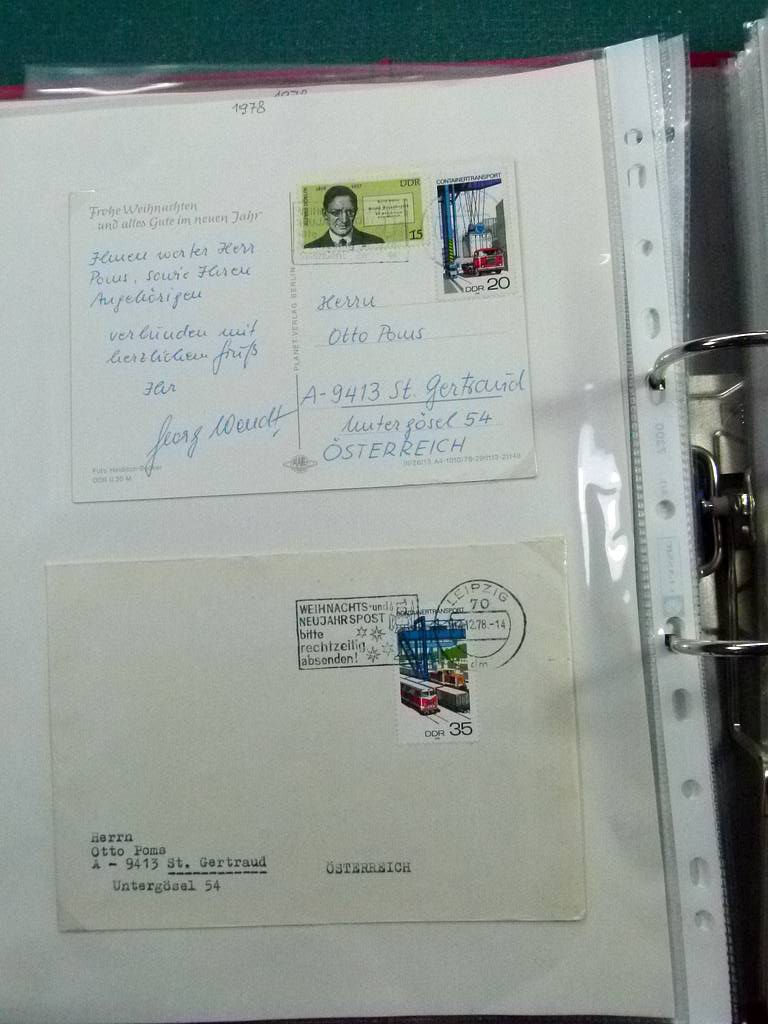 1978
1978
Frohe Weihnachten
und alles Gute im neuen Jahr
Ihnen werter Herr
Poms, sowie Ihren
Angehörigen
verbunden mit
herzlichem Gruß
Ihr
Georg Wendt
DDR 0,20 M
PLANET-VERLAG BERLIN
DDR
15
CONTAINERTRANSPORT
DDR 20
Herrn
Otto Poms
A-9413 St. Gertraud
Untergösel 54
ÖSTERREICH
WEIHNACHTS-und
NEUJAHRSPOST
bitte
rechtzeitig
absenden!
CONTAINERTRANSPORT
LEIPZIG
70
12.78.-14
DDR 35
Herrn
Otto Poms
A - 9413 St. Gertraud
Untergösel 54
ÖSTERREICH